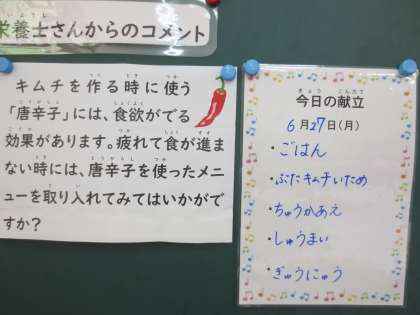 栄養士さんからのコメント
キムチを作る時に使う
「唐辛子」には、食欲がでる
効果があります。疲れて食が進ま
ない時には、唐辛子を使ったメニ
ューを取り入れてみてはいかがで
すか？
今日の献立
6月27日(月)
・ごはん
・ぶたキムチいため
・ちゅうかあえ
・しゅうまい
・ぎゅうにゅう